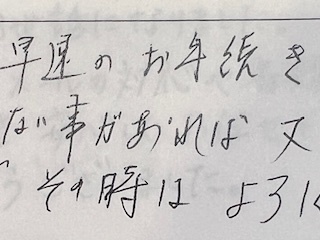 早速のお手続き
ない事があれば又
その時はよろし